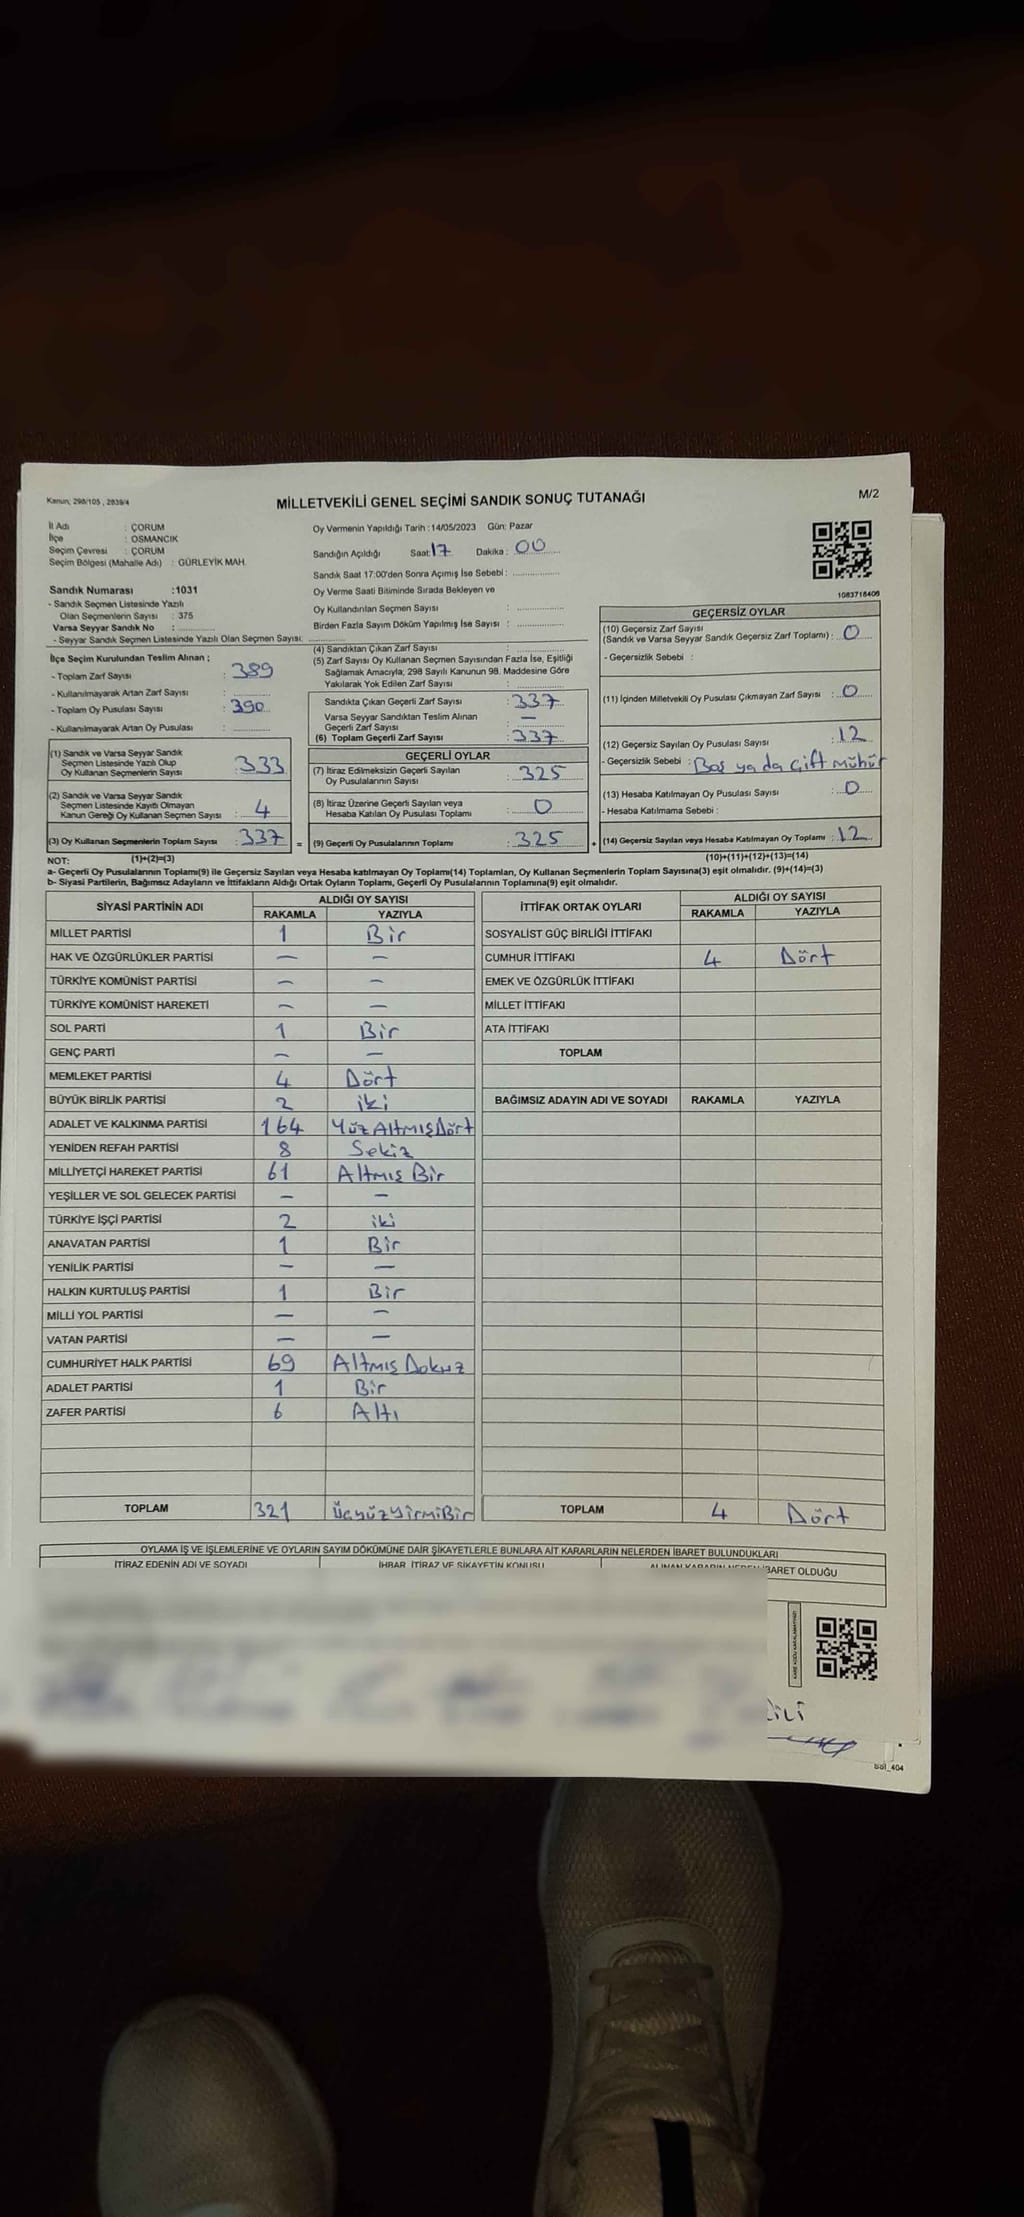 Kanun; 298/105 , 2839/4
MİLLETVEKİLİ GENEL SEÇİMİ SANDIK SONUÇ TUTANAĞI
M/2
İl Adı : ÇORUM
İlçe : OSMANCIK
Seçim Çevresi : ÇORUM
Seçim Bölgesi (Mahalle Adı) : GÜRLEYİK MAH.
Oy Vermenin Yapıldığı Tarih :14/05/2023 Gün: Pazar
Sandığın Açıldığı Saat: 17 Dakika : 00
Sandık Saat 17:00'den Sonra Açımış İse Sebebi:
Oy Verme Saati Bitiminde Sırada Bekleyen ve
Oy Kullandırılan Seçmen Sayısı :
Birden Fazla Sayım Döküm Yapılmış İse Sayısı :
1083718406
Sandık Numarası :1031
- Sandık Seçmen Listesinde Yazılı
Olan Seçmenlerin Sayısı : 375
Varsa Seyyar Sandık No :
- Seyyar Sandık Seçmen Listesinde Yazılı Olan Seçmen Sayısı:
İlçe Seçim Kurulundan Teslim Alınan ;
- Toplam Zarf Sayısı : 389
- Kullanılmayarak Artan Zarf Sayısı :
- Toplam Oy Pusulası Sayısı : 390
- Kullanılmayarak Artan Oy Pusulası :
(1) Sandık ve Varsa Seyyar Sandık
Seçmen Listesinde Yazılı Olup
Oy Kullanan Seçmenlerin Sayısı : 333
(2) Sandık ve Varsa Seyyar Sandık
Seçmen Listesinde Kayıtlı Olmayan
Kanun Gereği Oy Kullanan Seçmen Sayısı : 4
(3) Oy Kullanan Seçmenlerin Toplam Sayısı : 337 =
(4) Sandıktan Çıkan Zarf Sayısı :
(5) Zarf Sayısı Oy Kullanan Seçmen Sayısından Fazla İse, Eşitliği
Sağlamak Amacıyla, 298 Sayılı Kanunun 98. Maddesine Göre
Yakılarak Yok Edilen Zarf Sayısı :
Sandıkta Çıkan Geçerli Zarf Sayısı : 337
Varsa Seyyar Sandıktan Teslim Alınan
Geçerli Zarf Sayısı : —
(6) Toplam Geçerli Zarf Sayısı : 337
GEÇERLİ OYLAR
(7) İtiraz Edilmeksizin Geçerli Sayılan
Oy Pusulalarının Sayısı : 325
(8) İtiraz Üzerine Geçerli Sayılan veya
Hesaba Katılan Oy Pusulası Toplamı : 0
(9) Geçerli Oy Pusulalarının Toplamı : 325 +
GEÇERSİZ OYLAR
(10) Geçersiz Zarf Sayısı
(Sandık ve Varsa Seyyar Sandık Geçersiz Zarf Toplamı) : 0
- Geçersizlik Sebebi :
(11) İçinden Milletvekili Oy Pusulası Çıkmayan Zarf Sayısı : 0
(12) Geçersiz Sayılan Oy Pusulası Sayısı : 12
- Geçersizlik Sebebi : Boş ya da Çift mühür
(13) Hesaba Katılmayan Oy Pusulası Sayısı : 0
- Hesaba Katılmama Sebebi :
(14) Geçersiz Sayılan veya Hesaba Katılmayan Oy Toplamı : 12
NOT: (1)+(2)=(3)
(10)+(11)+(12)+(13)=(14)
a- Geçerli Oy Pusulalarının Toplamı(9) ile Geçersiz Sayılan veya Hesaba katılmayan Oy Toplamı(14) Toplamları, Oy Kullanan Seçmenlerin Toplam Sayısına(3) eşit olmalıdır. (9)+(14)=(3)
b- Siyasi Partilerin, Bağımsız Adayların ve İttifakların Aldığı Ortak Oyların Toplamı, Geçerli Oy Pusulalarının Toplamına(9) eşit olmalıdır.
SİYASİ PARTİNİN ADI ALDIĞI OY SAYISI
RAKAMLA YAZIYLA
MİLLET PARTİSİ 1 Bir
HAK VE ÖZGÜRLÜKLER PARTİSİ — —
TÜRKİYE KOMÜNİST PARTİSİ — —
TÜRKİYE KOMÜNİST HAREKETİ — —
SOL PARTİ 1 Bir
GENÇ PARTİ — —
MEMLEKET PARTİSİ 4 Dört
BÜYÜK BİRLİK PARTİSİ 2 iki
ADALET VE KALKINMA PARTİSİ 164 YüzAltmışDört
YENİDEN REFAH PARTİSİ 8 Sekiz
MİLLİYETÇİ HAREKET PARTİSİ 61 Altmış Bir
YEŞİLLER VE SOL GELECEK PARTİSİ — —
TÜRKİYE İŞÇİ PARTİSİ 2 iki
ANAVATAN PARTİSİ 1 Bir
YENİLİK PARTİSİ — —
HALKIN KURTULUŞ PARTİSİ 1 Bir
MİLLİ YOL PARTİSİ — —
VATAN PARTİSİ — —
CUMHURİYET HALK PARTİSİ 69 Altmış Dokuz
ADALET PARTİSİ 1 Bir
ZAFER PARTİSİ 6 Altı
TOPLAM 321 ÜçyüzYirmiBir
İTTİFAK ORTAK OYLARI ALDIĞI OY SAYISI
RAKAMLA YAZIYLA
SOSYALİST GÜÇ BİRLİĞİ İTTİFAKI
CUMHUR İTTİFAKI 4 Dört
EMEK VE ÖZGÜRLÜK İTTİFAKI
MİLLET İTTİFAKI
ATA İTTİFAKI
TOPLAM
BAĞIMSIZ ADAYIN ADI VE SOYADI RAKAMLA YAZIYLA
TOPLAM 4 Dört
OYLAMA İŞ VE İŞLEMLERİNE VE OYLARIN SAYIM DÖKÜMÜNE DAİR ŞİKAYETLERLE BUNLARA AİT KARARLARIN NELERDEN İBARET BULUNDUKLARI
İTİRAZ EDENİN ADI VE SOYADI İHBAR, İTİRAZ VE ŞİKAYETİN KONUSU ALINAN KARARIN NEDEN İBARET OLDUĞU